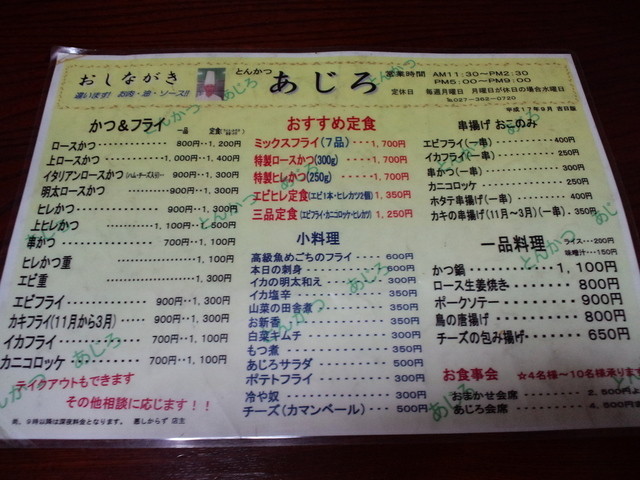 おしながき
違います! お肉・油・ソース!!
とんかつ
あじろ
営業時間 AM11:30~PM2:30
PM5:00~PM9:00
定休日 毎週月曜日 月曜日が休日の場合水曜日
☎027-362-0720
平成17年9月 吉日版
かつ&フライ 一品 定食
ロースかつ 800円‥1,200円
上ロースかつ 1,000円‥1,400円
イタリアンロースかつ(ハム・チーズ入り) 900円‥1,300円
明太ロースかつ 900円‥1,300円
ヒレかつ 900円‥1,300円
上ヒレかつ 1,100円‥1,500円
串かつ 700円‥1,100円
ヒレかつ重 1,100円
エビ重 1,300円
エビフライ 900円‥1,300円
カキフライ(11月から3月) 900円‥1,300円
イカフライ 700円‥1,100円
カニコロッケ 700円‥1,100円
テイクアウトもできます
その他相談に応じます!!
尚、9時以降は深夜料金となります。 悪しからず 店主
おすすめ定食
ミックスフライ(7品) 1,700円
特製ロースかつ(300g) 1,700円
特製ヒレかつ(250g) 1,700円
エビヒレ定食(エビ1本・ヒレカツ2個) 1,350円
三品定食(エビフライ・カニコロッケ・ヒレカツ) 1,250円
小料理
高級魚めごちのフライ 600円
本日の刺身 500円
イカの明太和え 300円
イカ塩辛 300円
山菜の田舎煮 300円
お新香 300円
白菜キムチ 300円
もつ煮 350円
あじろサラダ 500円
ポテトフライ 300円
冷や奴 300円
チーズ(カマンベール) 500円
串揚げ おこのみ
エビフライ(一串) 400円
イカフライ(一串) 250円
串かつ(一串) 300円
カニコロッケ 250円
ホタテ串揚げ(一串) 400円
カキの串揚げ(11月~3月)(一串) 350円
一品料理 ライス‥200円
味噌汁‥150円
かつ鍋 1,100円
ロース生姜焼き 800円
ポークソテー 900円
鳥の唐揚げ 800円
チーズの包み揚げ 650円
お食事会 ☆4名様~10名様承ります
おまかせ会席 2,500円より
あじろ会席 4,500円より